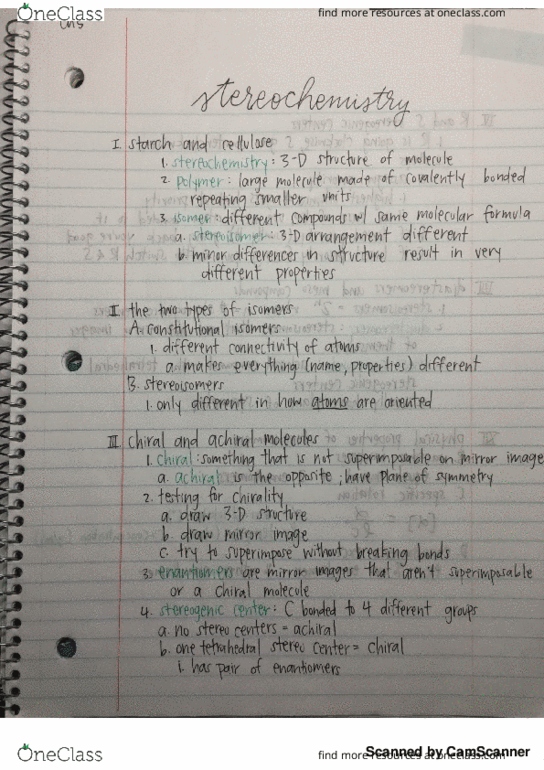 OneClass
find more resources at oneclass.com
Ch5
stereochemistry
I. starch and cellulose
1. stereochemistry: 3-D structure of molecule
2. polymer: large molecule made of covalently bonded
repeating smaller units
3. isomer: different compounds w/ same molecular formula
a. stereoisomer: 3-D arrangement different
b. minor differences in structure result in very
different properties
II. the two types of isomers
A. constitutional isomers
1. different connectivity of atoms
a. makes everything (name, properties) different
B. stereoisomers
1. only different in how atoms are oriented
III. chiral and achiral molecules
1. chiral: something that is not superimposable on mirror image
a. achiral is the opposite; have plane of symmetry
2. testing for chirality
a. draw 3-D structure
b. draw mirror image
c. try to superimpose without breaking bonds
3. enantiomers are mirror images that aren't superimposable
or a chiral molecule
4. stereogenic center: C bonded to 4 different groups
a. no stereo centers = achiral
b. one tetrahedral stereo center = chiral
i. has pair of enantiomers
OneClass
find more resources at oneclass.com
Scanned by CamScanner